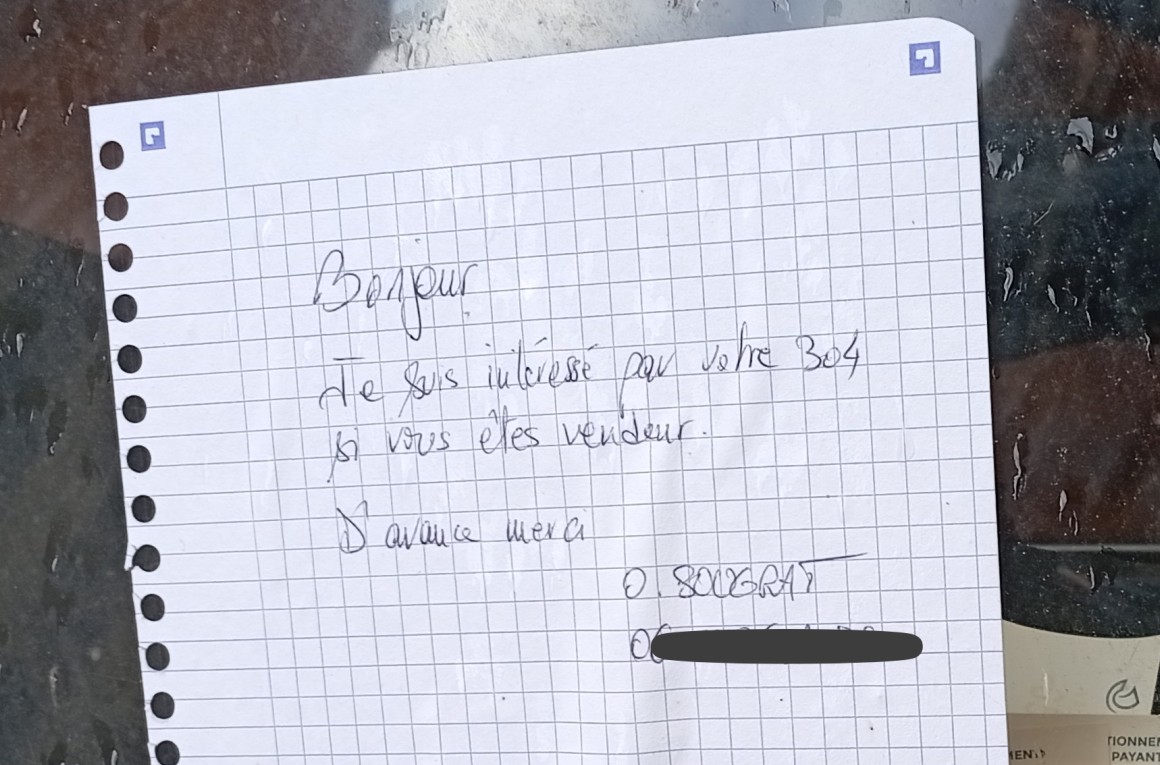 Bonjour
Je suis intéressé par votre 304
si vous êtes vendeur.
D'avance merci
O. SOUGRAT
06
TIONNEM
MENT
PAYANT